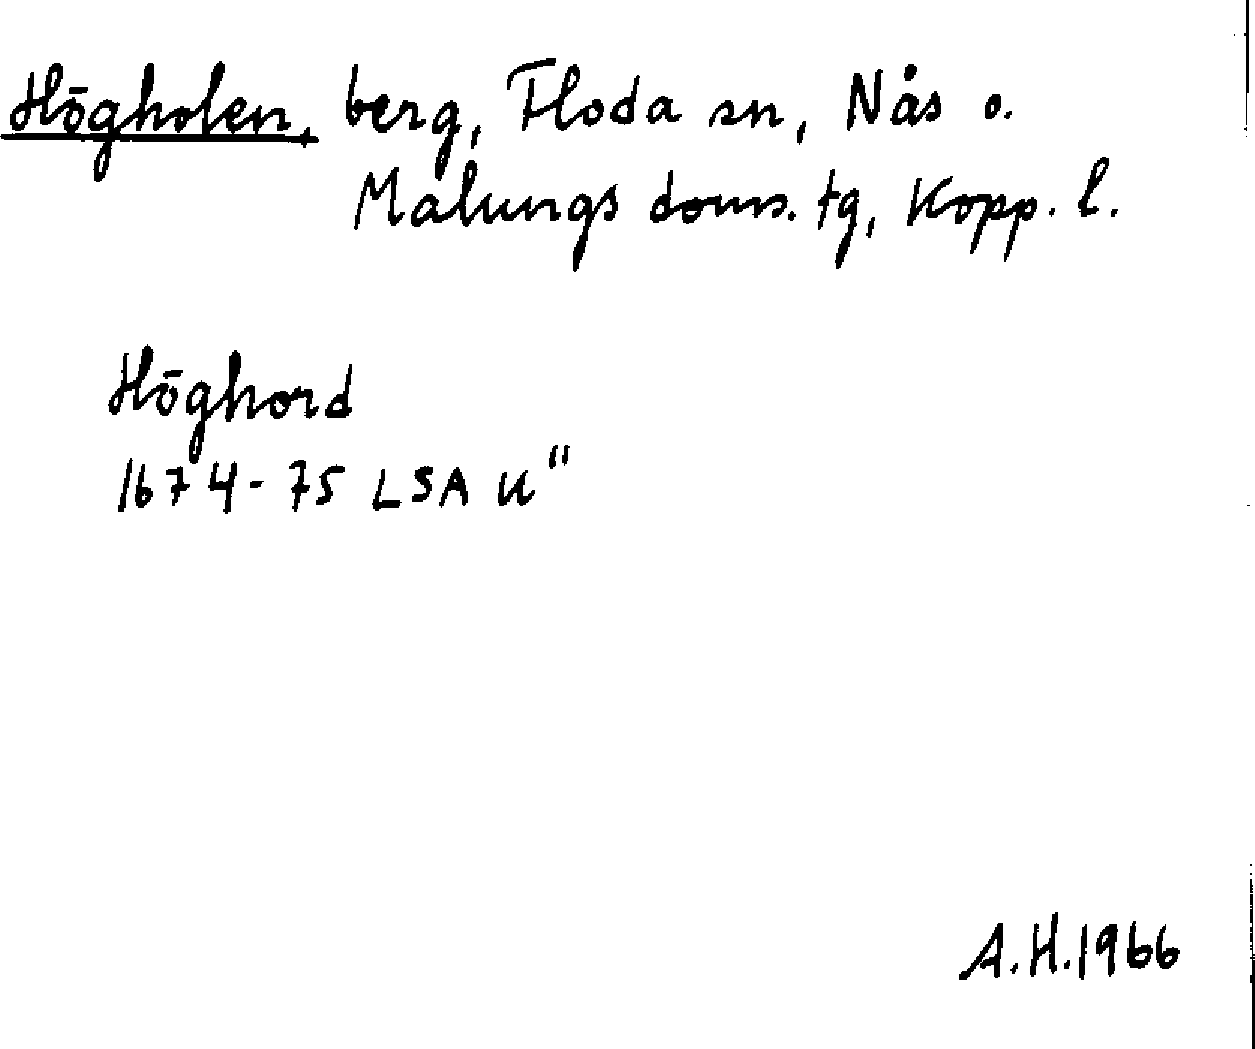 Högholen, berg, Floda sn, Nås o.
Malungs doms. tg, Kopp. l.
Höghord
1674-75 LSA U"
A.H.1966